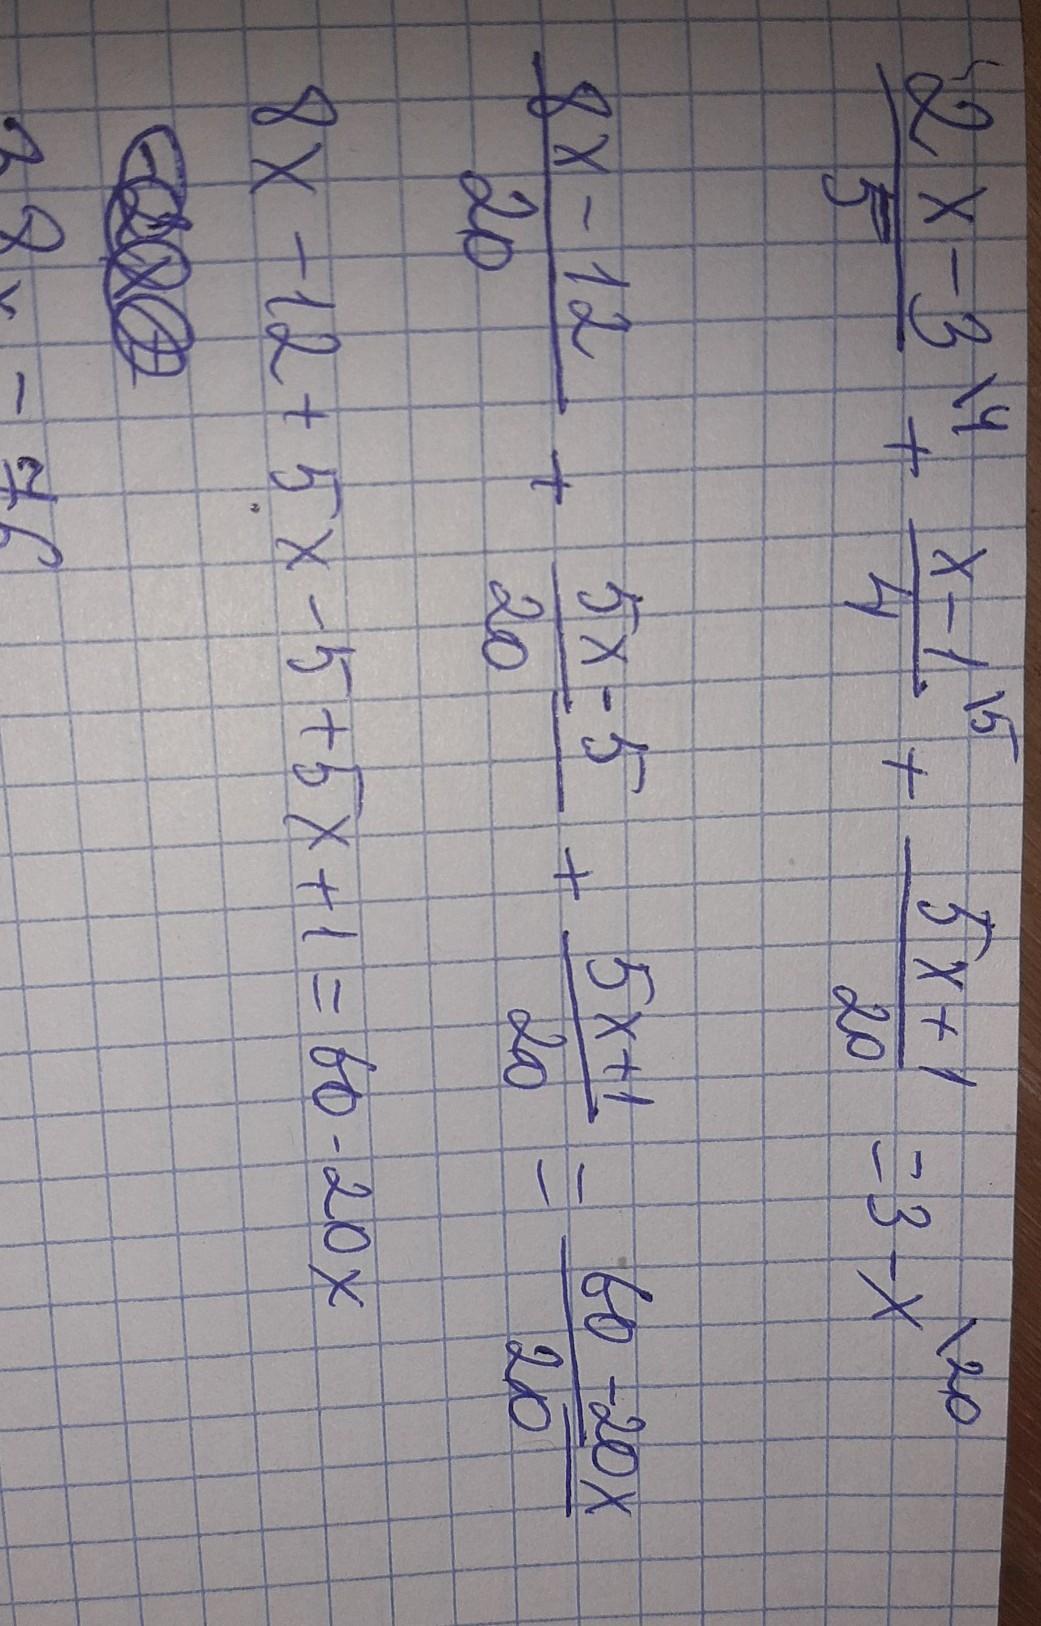 (2x-3)/5 \4 + (x-1)/4 \5 + (5x+1)/20 = 3-x \20
(8x-12)/20 + (5x-5)/20 + (5x+1)/20 = (60-20x)/20
8x-12+5x-5+5x+1=60-20x
38x-76